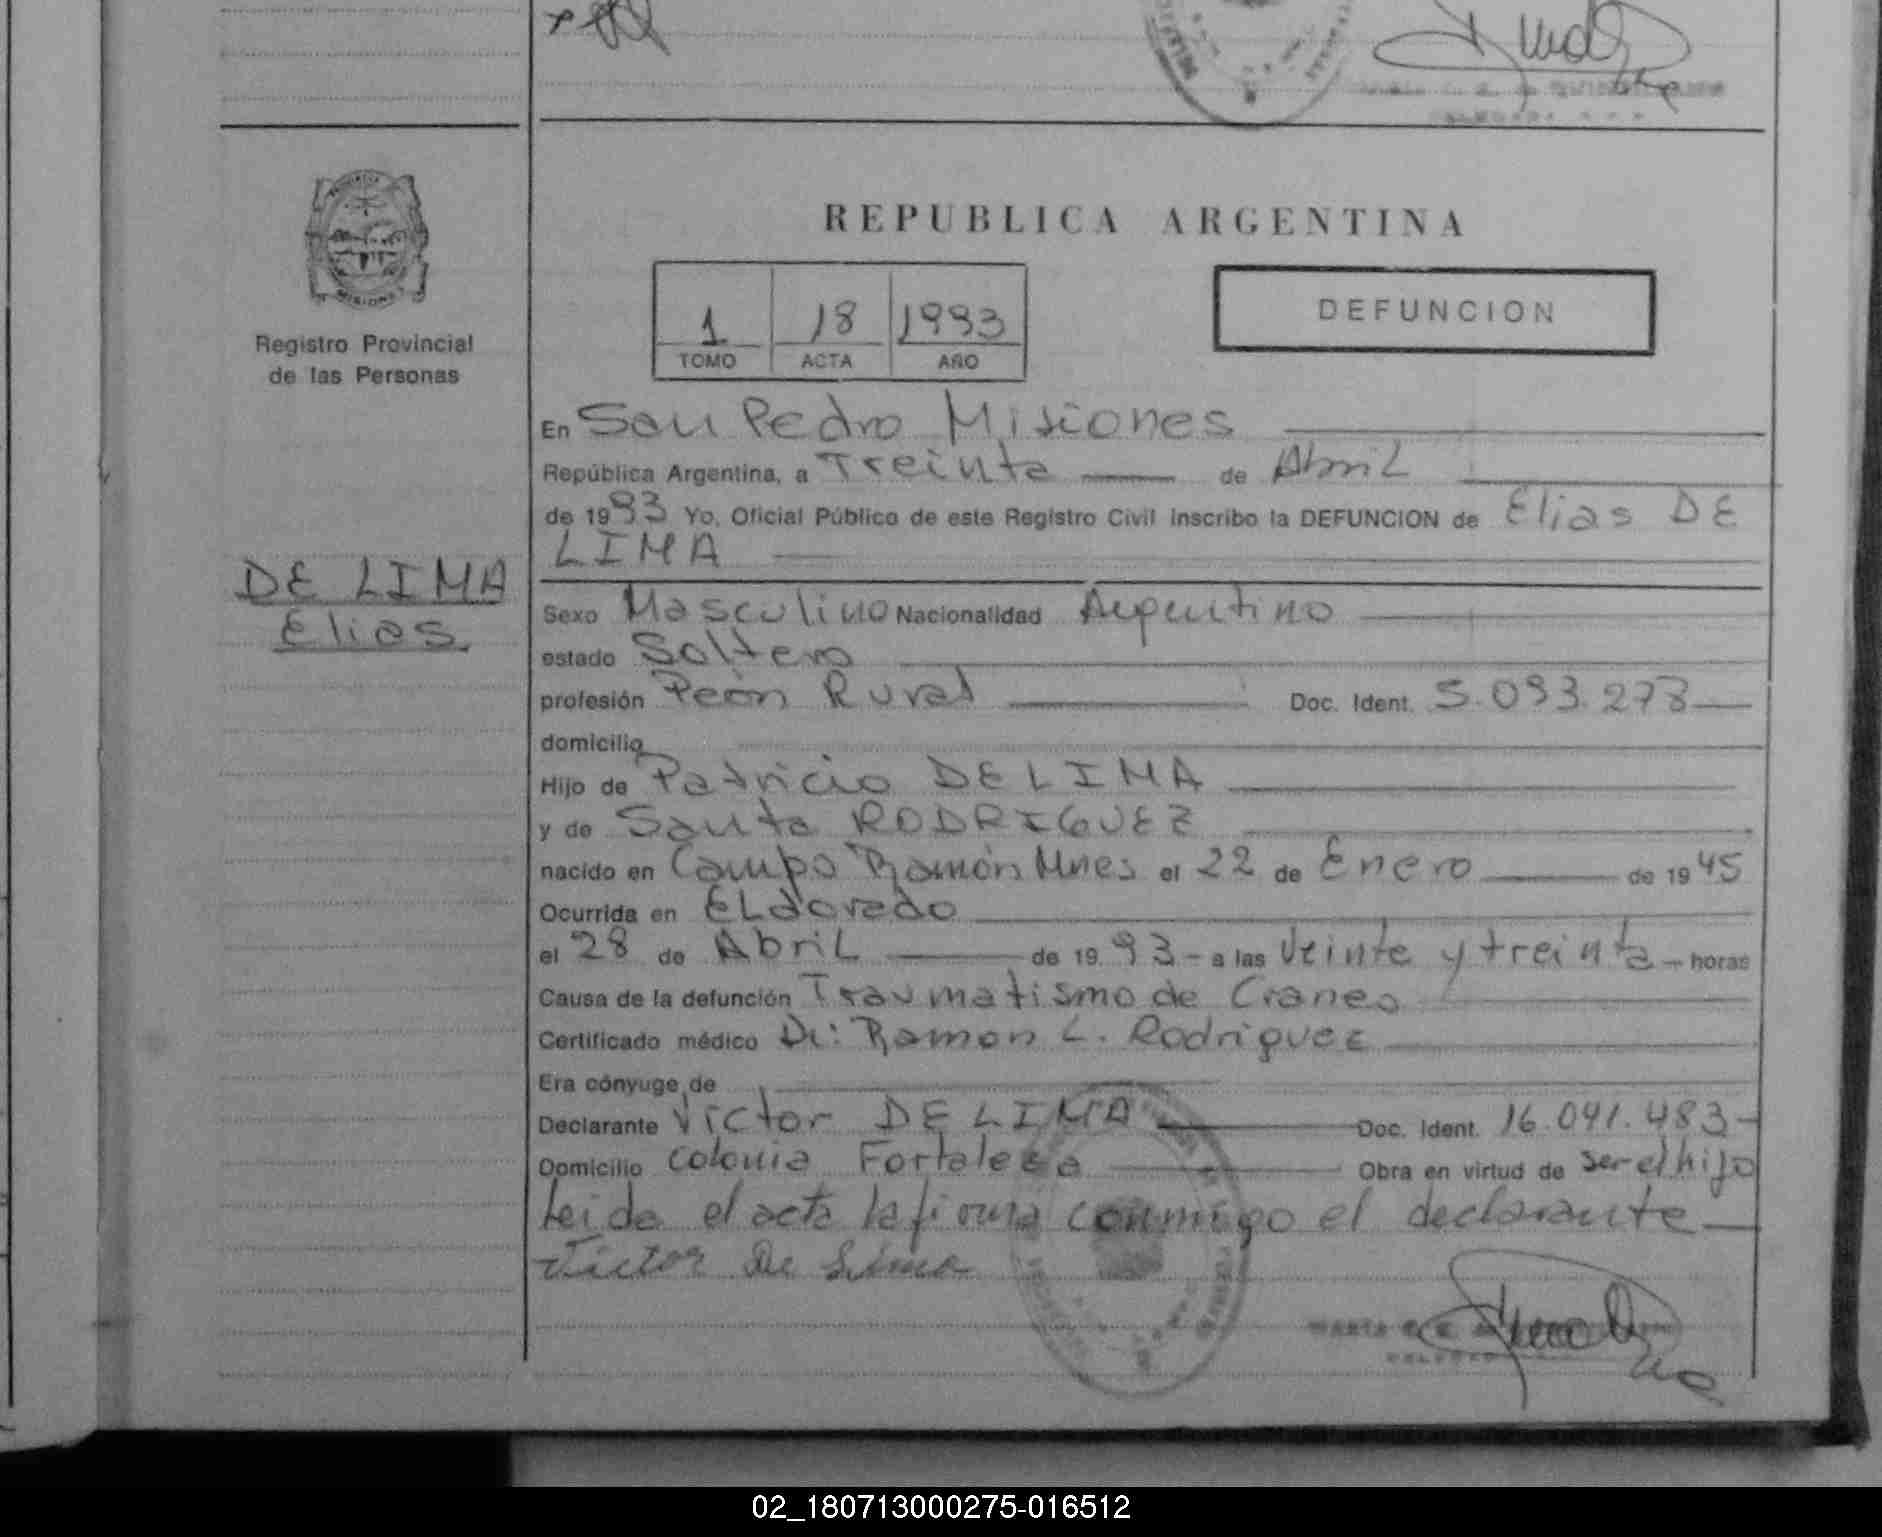 REPUBLICA ARGENTINA
PROVINCIA
MISIONES
Registro Provincial
de las Personas
1 18 1993
TOMO ACTA AÑO
DEFUNCION
En San Pedro Misiones
República Argentina, a Treinta de Abril
de 1993 Yo, Oficial Público de este Registro Civil inscribo la DEFUNCION de Elias DE
LIMA
DE LIMA
Elias
Sexo Masculino Nacionalidad Argentino
estado Soltero
profesión Peón Rural Doc. Ident. 5.093.278
domicilio
Hijo de Patricio DE LIMA
y de Santa RODRIGUEZ
nacido en Campo Ramón Mnes el 22 de Enero de 1945
Ocurrida en ELdorado
el 28 de Abril de 19 93 - a las Veinte y treinta - horas
Causa de la defunción Traumatismo de Craneo
Certificado médico Dr: Ramon L. Rodriguez
Era cónyuge de
Declarante Victor DE LIMA Doc. Ident. 16.041.483-
Domicilio Colonia Fortaleza Obra en virtud de ser el hijo
Leida el acta la firma conmigo el declarante
Victor De Lima
02_180713000275-016512